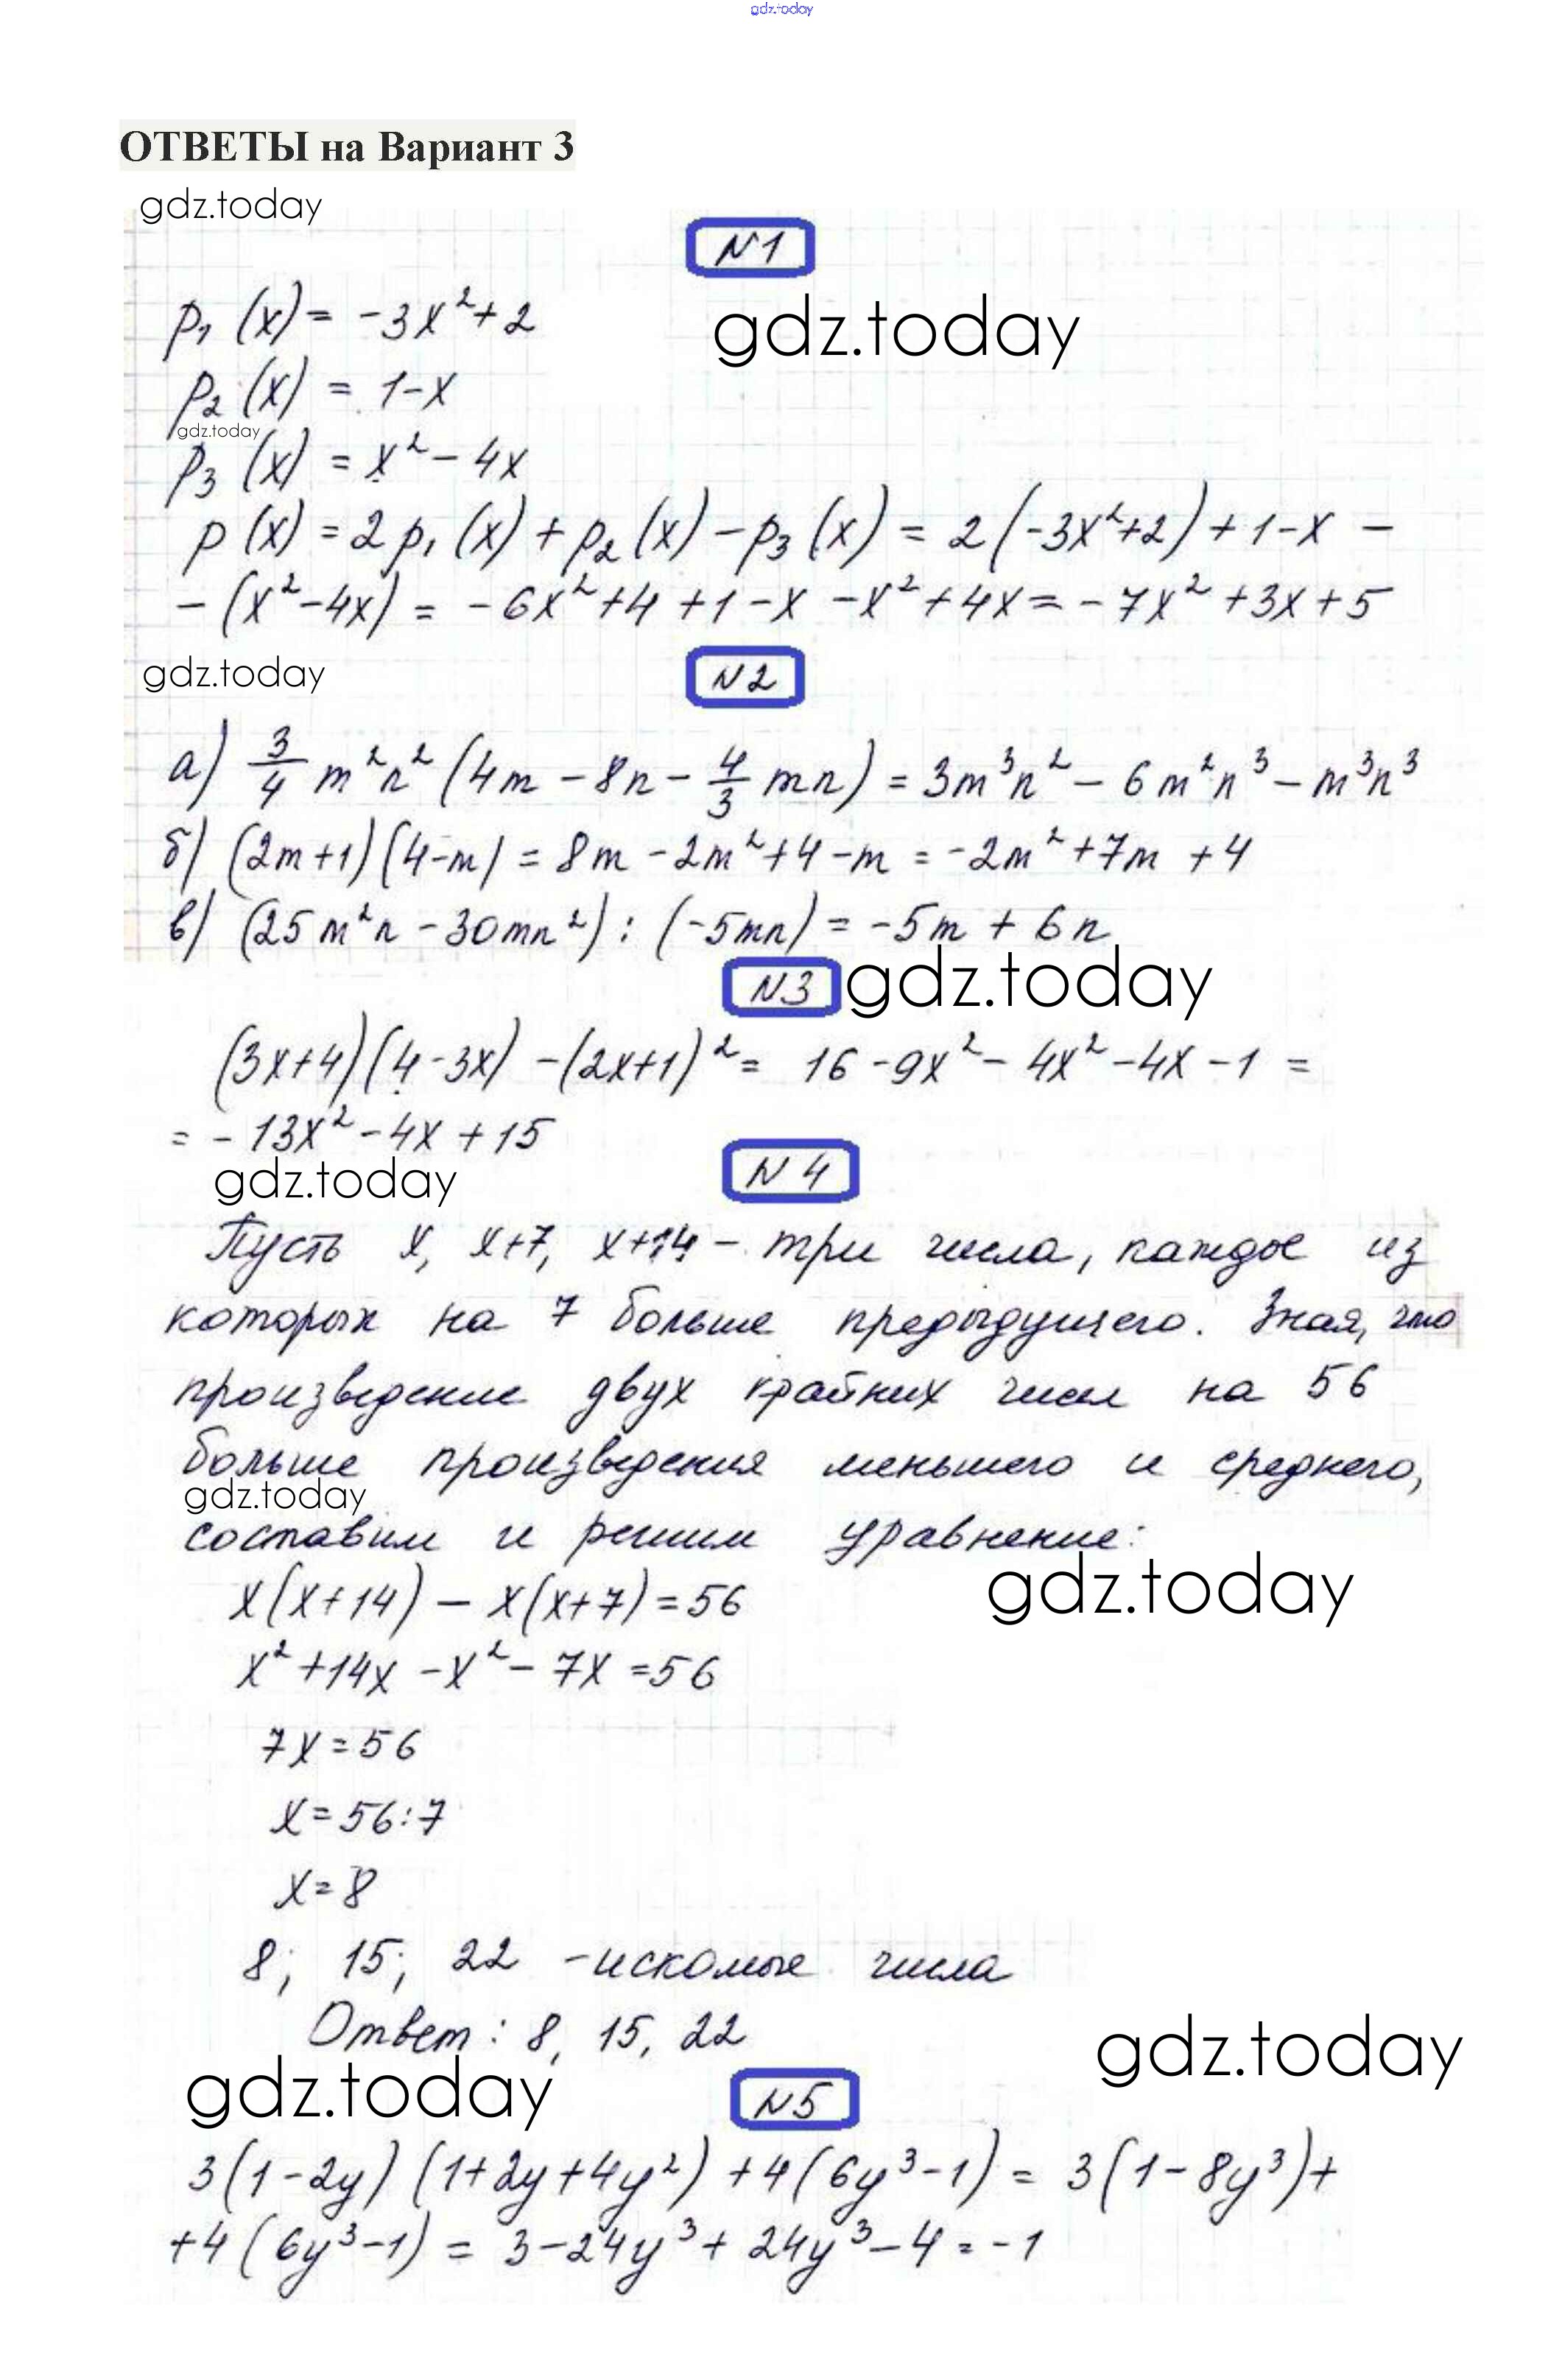 gdz.today
ОТВЕТЫ на Вариант 3
gdz.today
N1
p₁(x) = -3x²+2
gdz.today
p₂(x) = 1-x
gdz.today
p₃(x) = x²-4x
p(x) = 2p₁(x)+p₂(x)-p₃(x) = 2(-3x²+2)+1-x -
-(x²-4x) = -6x²+4+1-x-x²+4x = -7x²+3x+5
gdz.today
N2
а) 3/4 m²n²(4m-8n-4/3 mn) = 3m³n²-6m²n³-m³n³
б) (2m+1)(4-m) = 8m-2m²+4-m = -2m²+7m+4
в) (25m²n-30mn²):(-5mn) = -5m+6n
N3
gdz.today
(3x+4)(4-3x)-(2x+1)² = 16-9x²-4x²-4x-1 =
= -13x²-4x+15
gdz.today
N4
Пусть x, x+7, x+14 - три числа, каждое из
которых на 7 больше предыдущего. Зная, что
произведение двух крайних чисел на 56
больше произведения меньшего и среднего,
gdz.today
составим и решим уравнение:
gdz.today
x(x+14) - x(x+7) = 56
x²+14x-x²-7x = 56
7x = 56
x = 56:7
x = 8
8; 15; 22 - искомые числа
Ответ: 8, 15, 22
gdz.today
gdz.today
N5
3(1-2y)(1+2y+4y²)+4(6y³-1) = 3(1-8y³)+
+4(6y³-1) = 3-24y³+24y³-4 = -1